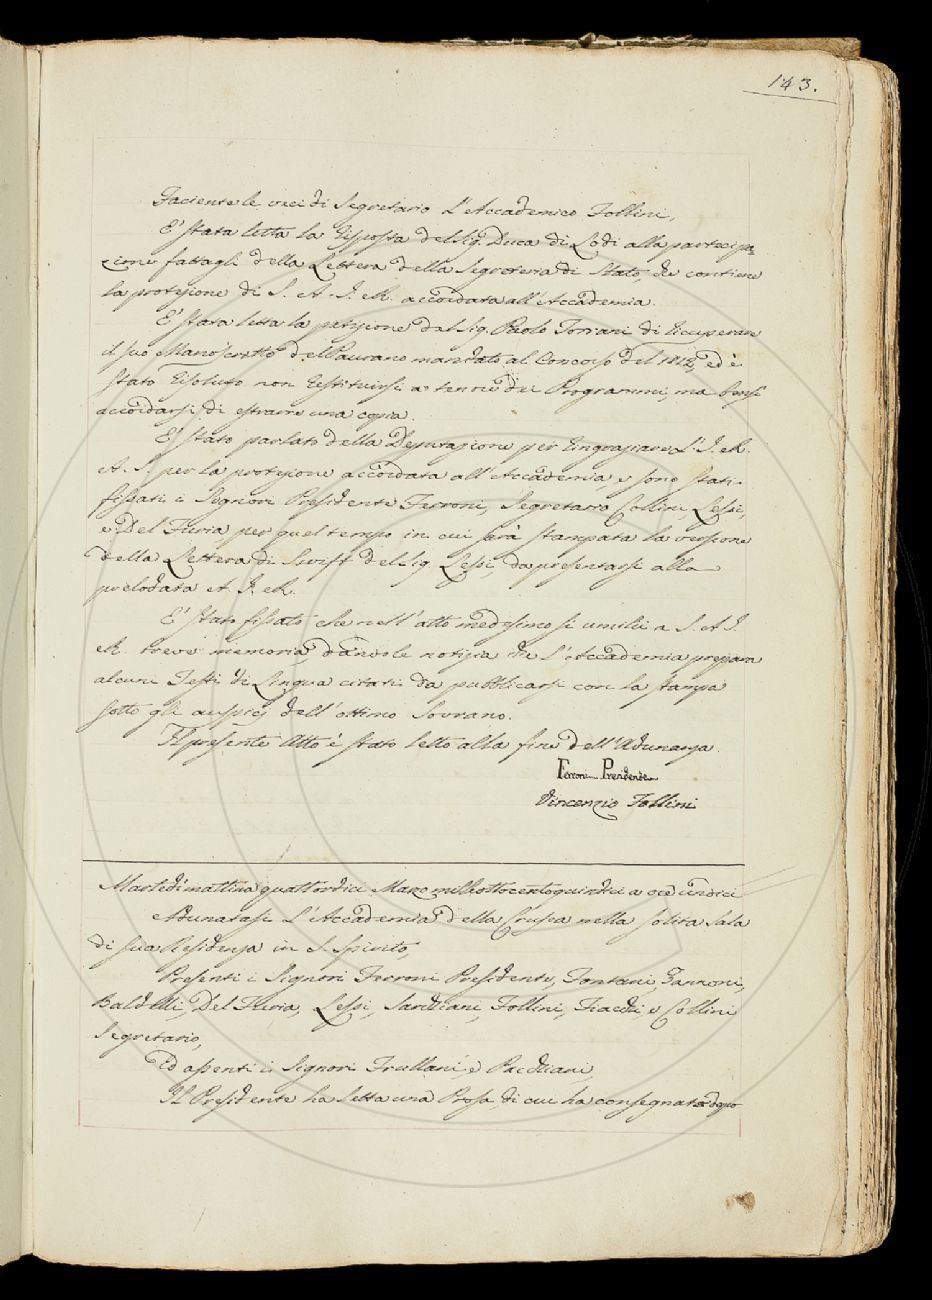 143.
Faciente le veci di Segretario L'Accademico Follini,
E' stata letta la risposta del Sig. Duca di Lodi alla partecipa=
zione fattagli della Lettera della Segreteria di Stato, che contiene
la protezione di S. A. I. R. accordata all'Accademia.
E' stata letta la petizione del Sig. Paolo Torriani di ricuperare
il suo Manoscritto del mandato al Concorso del 1812, ed è
stato risoluto non restituirsi a tenore dei Programmi, ma bensì
accordarsi di estrarne una copia.
E' stato parlato della Deputazione per ringraziare L' I. R.
A. S. per la protezione accordata all'Accademia, e sono stati
fissati i Signori Presidente Ferroni, Segretario Collini, Lessi,
e Del Furia, per quel tempo in cui sarà stampata la versione
della Lettera di Swift del Sig. Lessi, da presentarsi alla
prelodata A. I. R.
E' stato fissato che nell'atto medesimo si umilii a S. A. I.
R. breve memoria dandole notizia che L'Accademia prepara
alcuni Testi di Lingua citati da pubblicarsi con la stampa
sotto gli auspicj dell'ottimo Sovrano.
Il presente Atto è stato letto alla fine dell'Adunanza.
Ferroni Presidente
Vincenzio Follini
Martedì mattina quattordici Marzo milleottocentoquindici a ore undici
Adunatasi L'Accademia della Crusca nella solita Sala
di sua Residenza in S. Spirito,
Presenti i Signori Ferroni Presidente, Fontani, Zannoni,
Baldelli, Del Furia, Lessi, Sarchiani, Follini, Fiacchi, e Collini
Segretario,
Ed assenti i Signori Frullani, e Pacchiani,
Il Presidente ha letta una Prosa, di cui ha consegnato